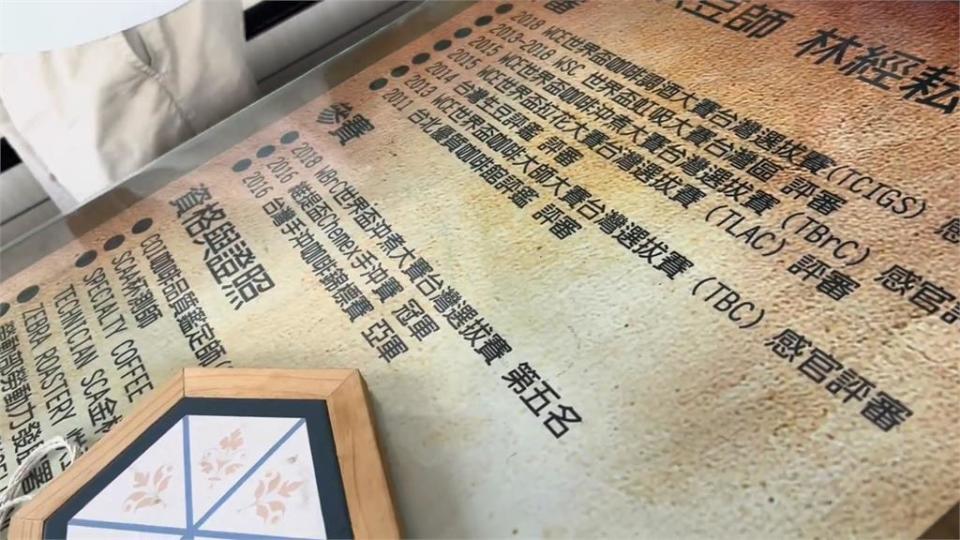 豆師 林經耘
審
2018 WCE世界盃咖啡調酒大賽台灣選拔賽(TCIGS) 感
2013-2018 WSC 世界盃虹吸大賽台灣區 評審
2015 WCE世界盃沖煮大賽台灣選拔賽 (TBrC) 感官評
2015 WCE世界盃拉花大賽台灣選拔賽 (TLAC) 評審
2014 台灣生豆評鑑 評審
2013 WCE世界盃咖啡大師大賽台灣選拔賽 (TBC) 感官評審
2011 台北優質咖啡館評鑑 評審
參賽
2018 WBrC世界盃沖煮大賽台灣選拔賽 第五名
2016 手沖賽 冠軍
2016 台灣手沖咖啡錦標賽 亞軍
資格與證照
CQI咖啡品質鑑定師(
SCAA杯測師
SPECIALTY COFFEE
TECHNICIAN SCA金杯
ZEBRA ROASTERY
勞動部勞動力發展署